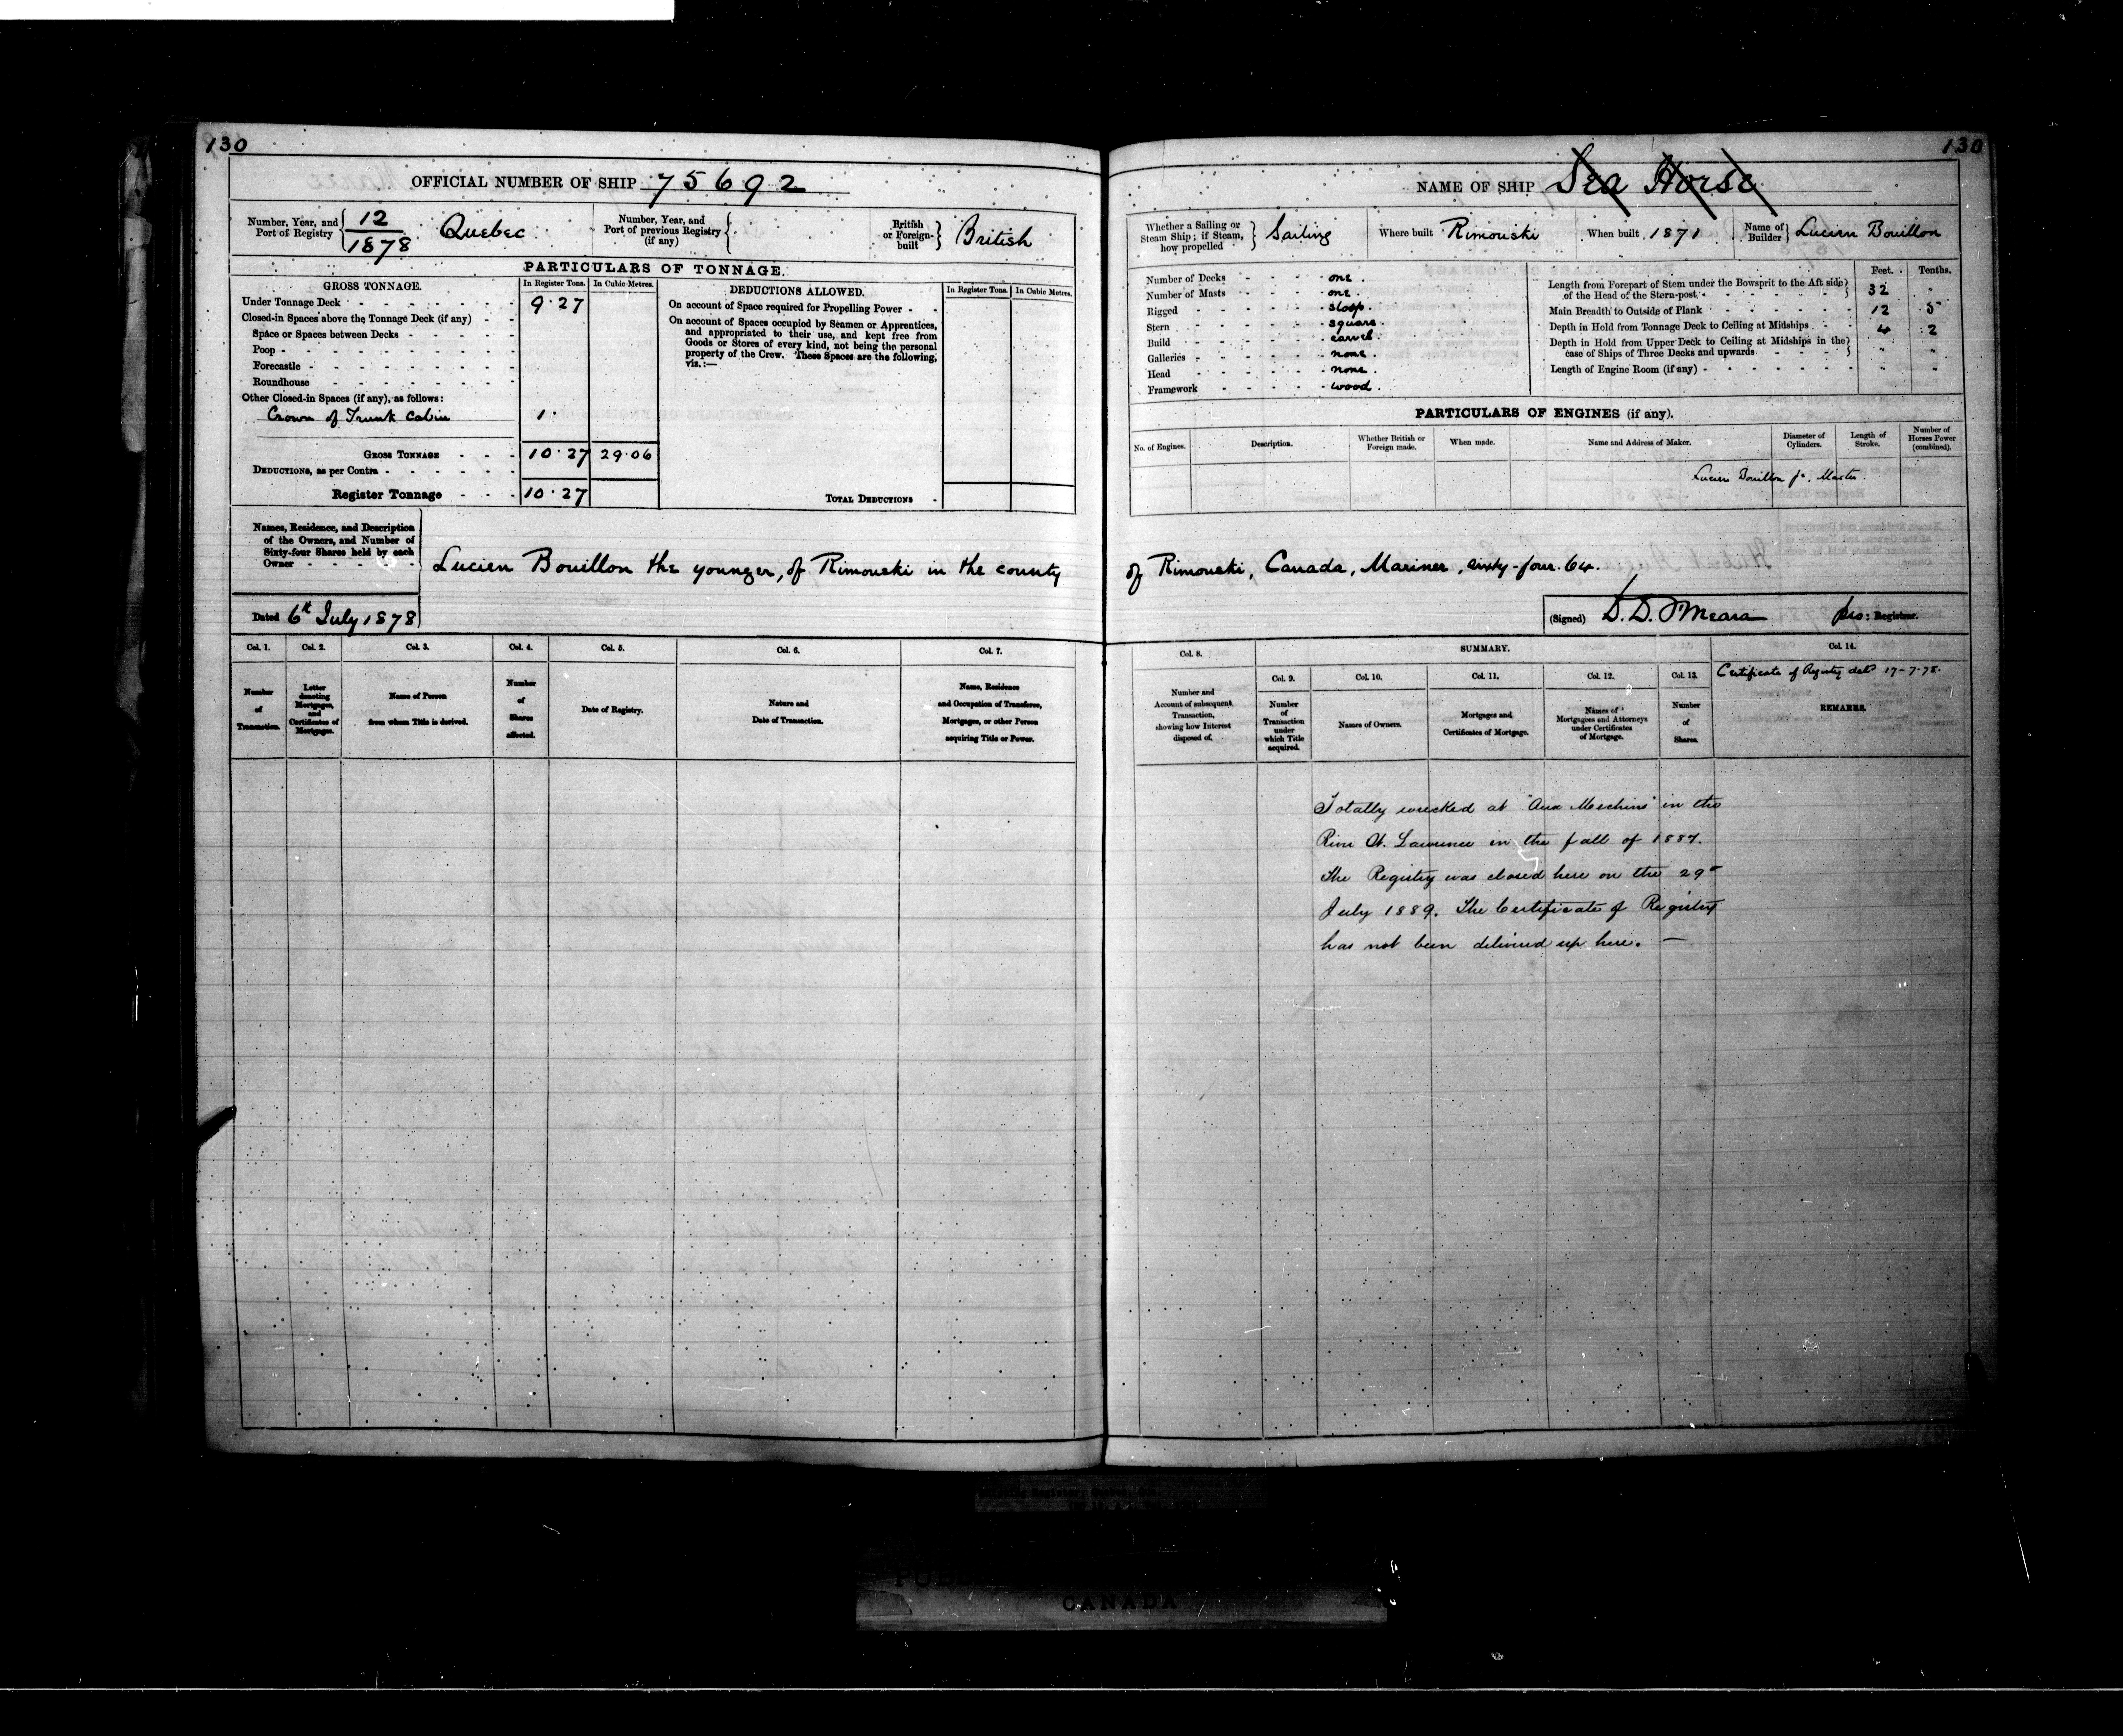 130
OFFICIAL NUMBER OF SHIP 75692
Number, Year, and Port of Registry 12/1878 Quebec
Number, Year, and Port of previous Registry (if any)
British or Foreign-built British
PARTICULARS OF TONNAGE.
GROSS TONNAGE. In Register Tons. In Cubic Metres.
Under Tonnage Deck 9.27
Closed-in Spaces above the Tonnage Deck (if any)
Space or Spaces between Decks
Poop
Forecastle
Roundhouse
Other Closed-in Spaces (if any), as follows:
Crown of Trunk Cabin 1.
GROSS TONNAGE 10.27 29.06
DEDUCTIONS, as per Contra
Register Tonnage 10.27
DEDUCTIONS ALLOWED. In Register Tons. In Cubic Metres.
On account of Space required for Propelling Power
On account of Spaces occupied by Seamen or Apprentices,
and appropriated to their use, and kept free from
Goods or Stores of every kind, not being the personal
property of the Crew. These Spaces are the following,
viz.:—
TOTAL DEDUCTIONS
Names, Residence, and Description
of the Owners, and Number of
Sixty-four Shares held by each
Owner
Lucien Bouillon the younger, of Rimouski in the county
Dated 6th July 1878
Col. 1. Col. 2. Col. 3. Col. 4. Col. 5. Col. 6. Col. 7.
Number of Transaction.
Letter denoting Mortgages, and Certificates of Mortgages.
Name of Person from whom Title is derived.
Number of Shares affected.
Date of Registry.
Nature and Date of Transaction.
Name, Residence and Occupation of Transferee, Mortgagee, or other Person acquiring Title or Power.
130
NAME OF SHIP Sea Horse
Whether a Sailing or Steam Ship; if Steam, how propelled Sailing
Where built Rimouski
When built 1871
Name of Builder Lucien Bouillon
Number of Decks one.
Number of Masts one.
Rigged sloop.
Stern square.
Build carvel.
Galleries none.
Head none.
Framework wood.
Feet. Tenths.
Length from Forepart of Stem under the Bowsprit to the Aft side of the Head of the Stern-post 32 "
Main Breadth to Outside of Plank 12 5
Depth in Hold from Tonnage Deck to Ceiling at Midships 4 2
Depth in Hold from Upper Deck to Ceiling at Midships in the case of Ships of Three Decks and upwards " "
Length of Engine Room (if any) " "
PARTICULARS OF ENGINES (if any).
No. of Engines. Description. Whether British or Foreign made. When made. Name and Address of Maker. Diameter of Cylinders. Length of Stroke. Number of Horses Power (combined).
Lucien Bouillon jr. Master.
of Rimouski, Canada, Mariner, sixty-four. 64.
(Signed) D. D. O'Meara pro: Registrar.
Col. 8. SUMMARY. Col. 14.
Col. 9. Col. 10. Col. 11. Col. 12. Col. 13.
Certificate of Registry dated 17-7-78.
Number and Account of subsequent Transaction, showing how Interest disposed of.
Number of Transaction under which Title acquired.
Names of Owners.
Mortgages and Certificates of Mortgage.
Names of Mortgagees and Attorneys under Certificates of Mortgage.
Number of Shares.
REMARKS.
Totally wrecked at "Aux Mechins" in the
River St. Lawrence in the fall of 1887.
The Registry was closed here on the 29th
July 1889. The Certificate of Registry
has not been delivered up here. —
CANADA